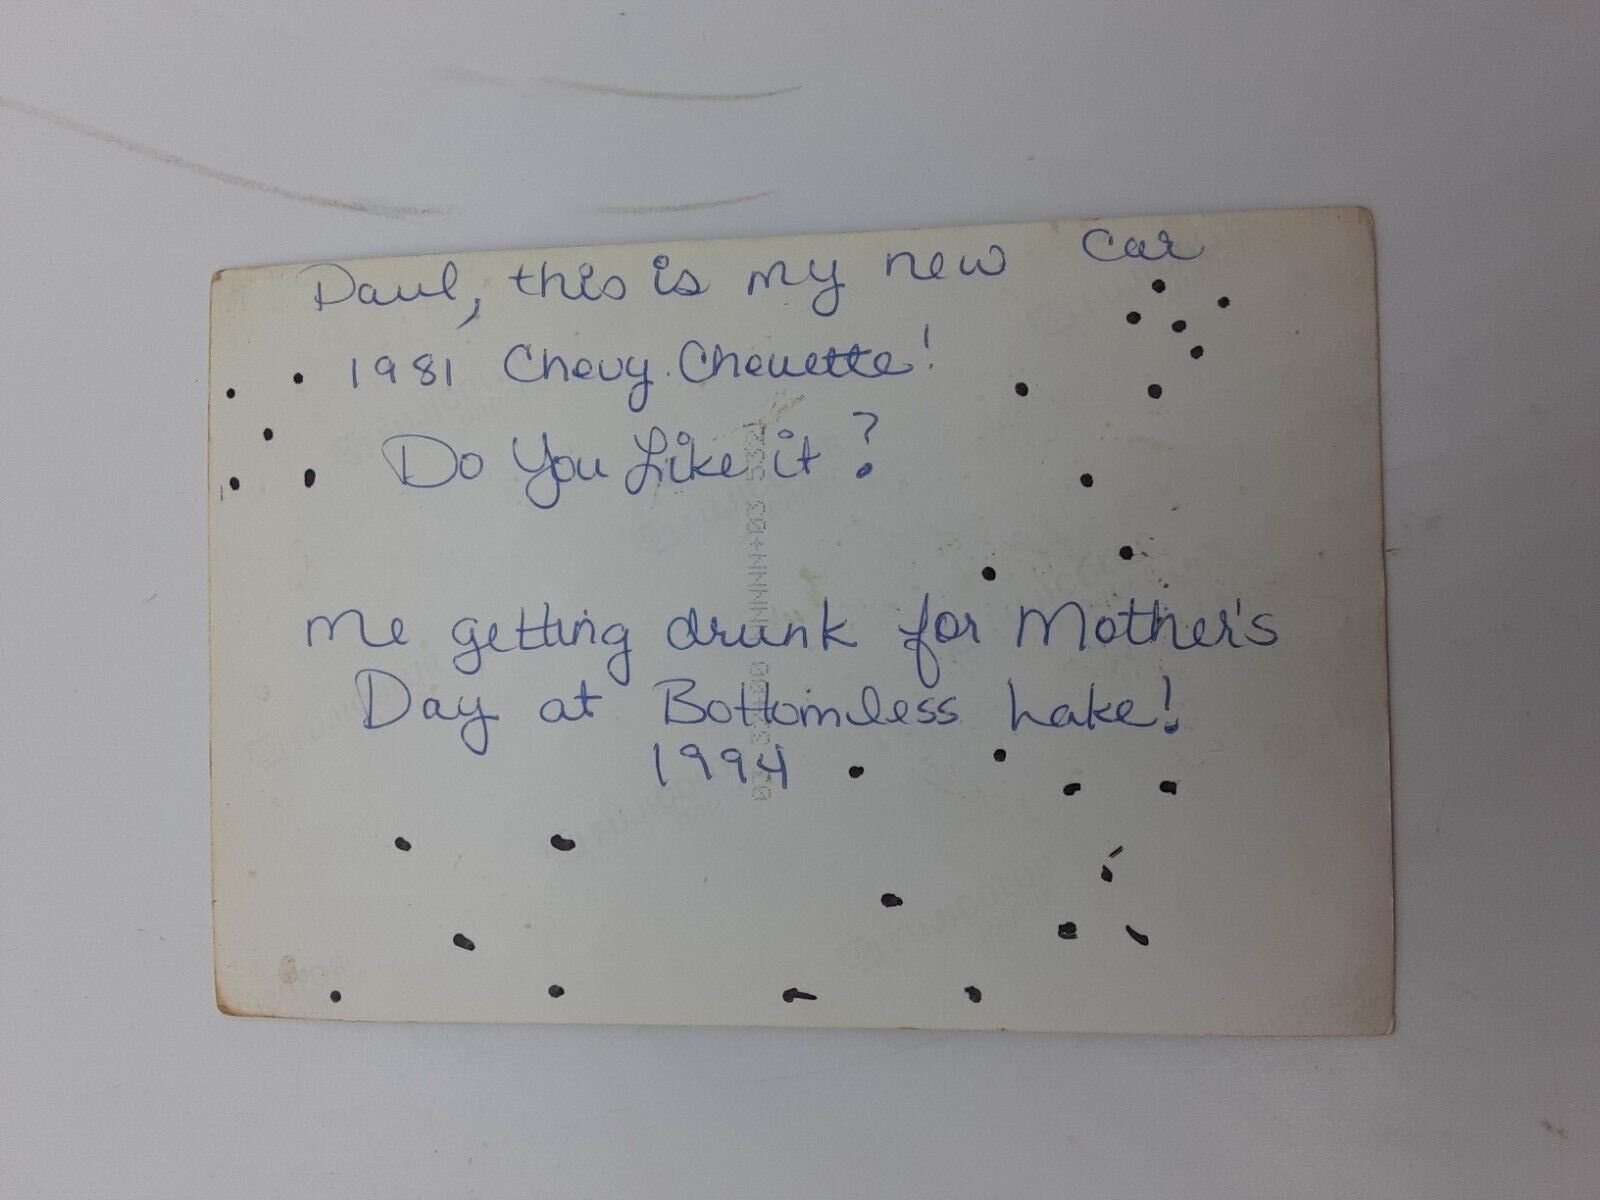 Paul, this is my new car
1981 Chevy Chevette!
Do You Like it?
me getting drunk for Mother's
Day at Bottomless Lake!
1994